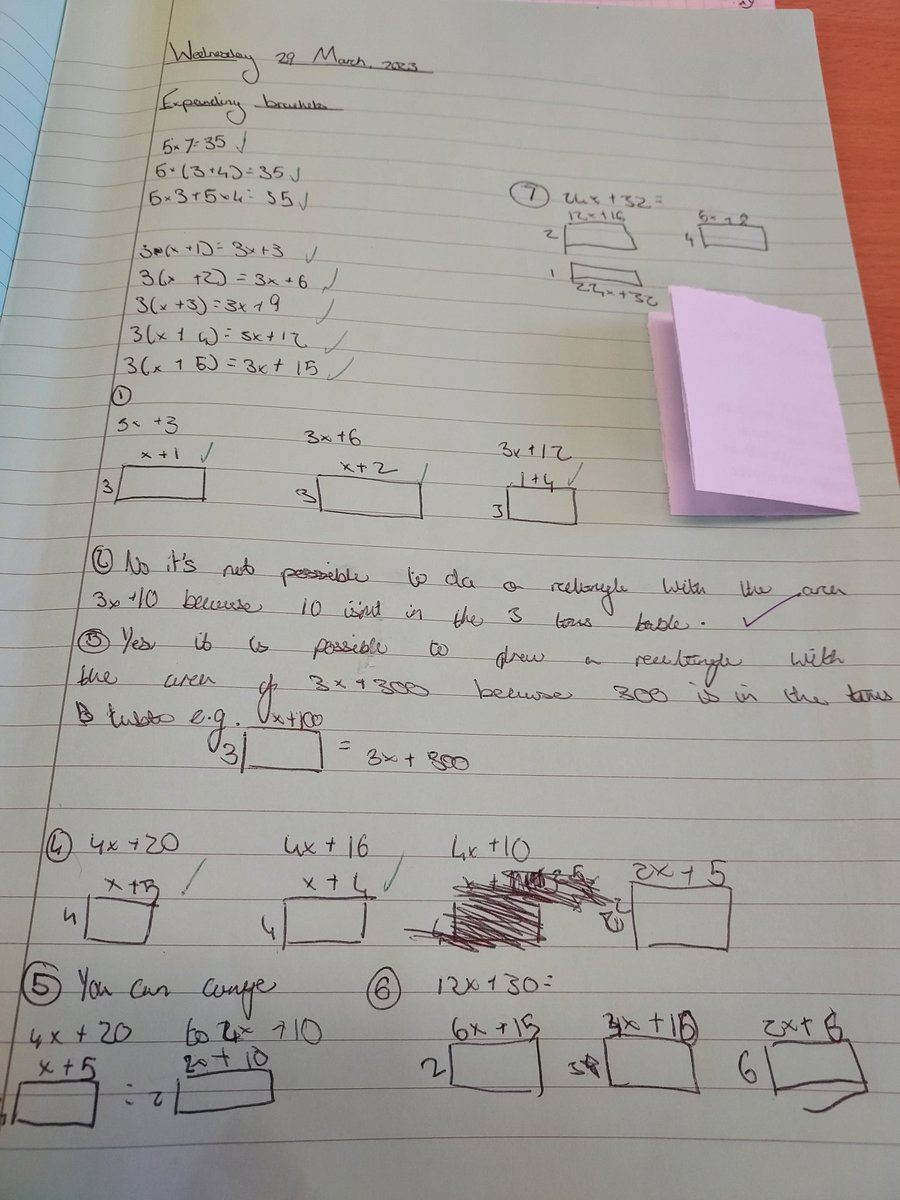 Wednesday 29 March. 2023
Expanding brackets
5×7=35 ✓
5×(3+4)=35 ✓
5×3+5×4=35 ✓
3(x+1)=3x+3 ✓
3(x+2)=3x+6 ✓
3(x+3)=3x+9 ✓
3(x+4)=3x+12 ✓
3(x+5)=3x+15 ✓
①
3x+3 3x+6 3x+12
x+1 ✓ x+2 ✓ 1+4 ✓
3 3 3
② No it's not possible to do a rectangle with the area
3x+10 because 10 isnt in the 3 table. ✓
③ Yes it is possible to drew a rectangle with
the area of 3x+300 because 300 is in the
3 e.g. x+100
3 = 3x+300
④ 4x+20 4x+16 4x+10
x+5 ✓ x+4 ✓ 2x+5
4 4 2
⑤ You can
4x+20 to 4x+10
x+5 2x+10
= 2
⑥ 12x+30=
6x+15 4x+10 2x+5
2 3 6
⑦ 24x+32=
12x+16 6x+8
2 4
1
24x+32